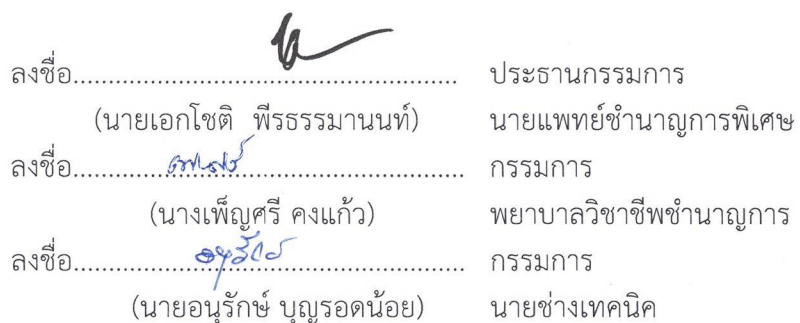 ลงชื่อ........................................................ ประธานกรรมการ
(นายเอกโชติ พีรธรรมานนท์) นายแพทย์ชำนาญการพิเศษ
ลงชื่อ........................................................ กรรมการ
(นางเพ็ญศรี คงแก้ว) พยาบาลวิชาชีพชำนาญการ
ลงชื่อ........................................................ กรรมการ
(นายอนุรักษ์ บุญรอดน้อย) นายช่างเทคนิค